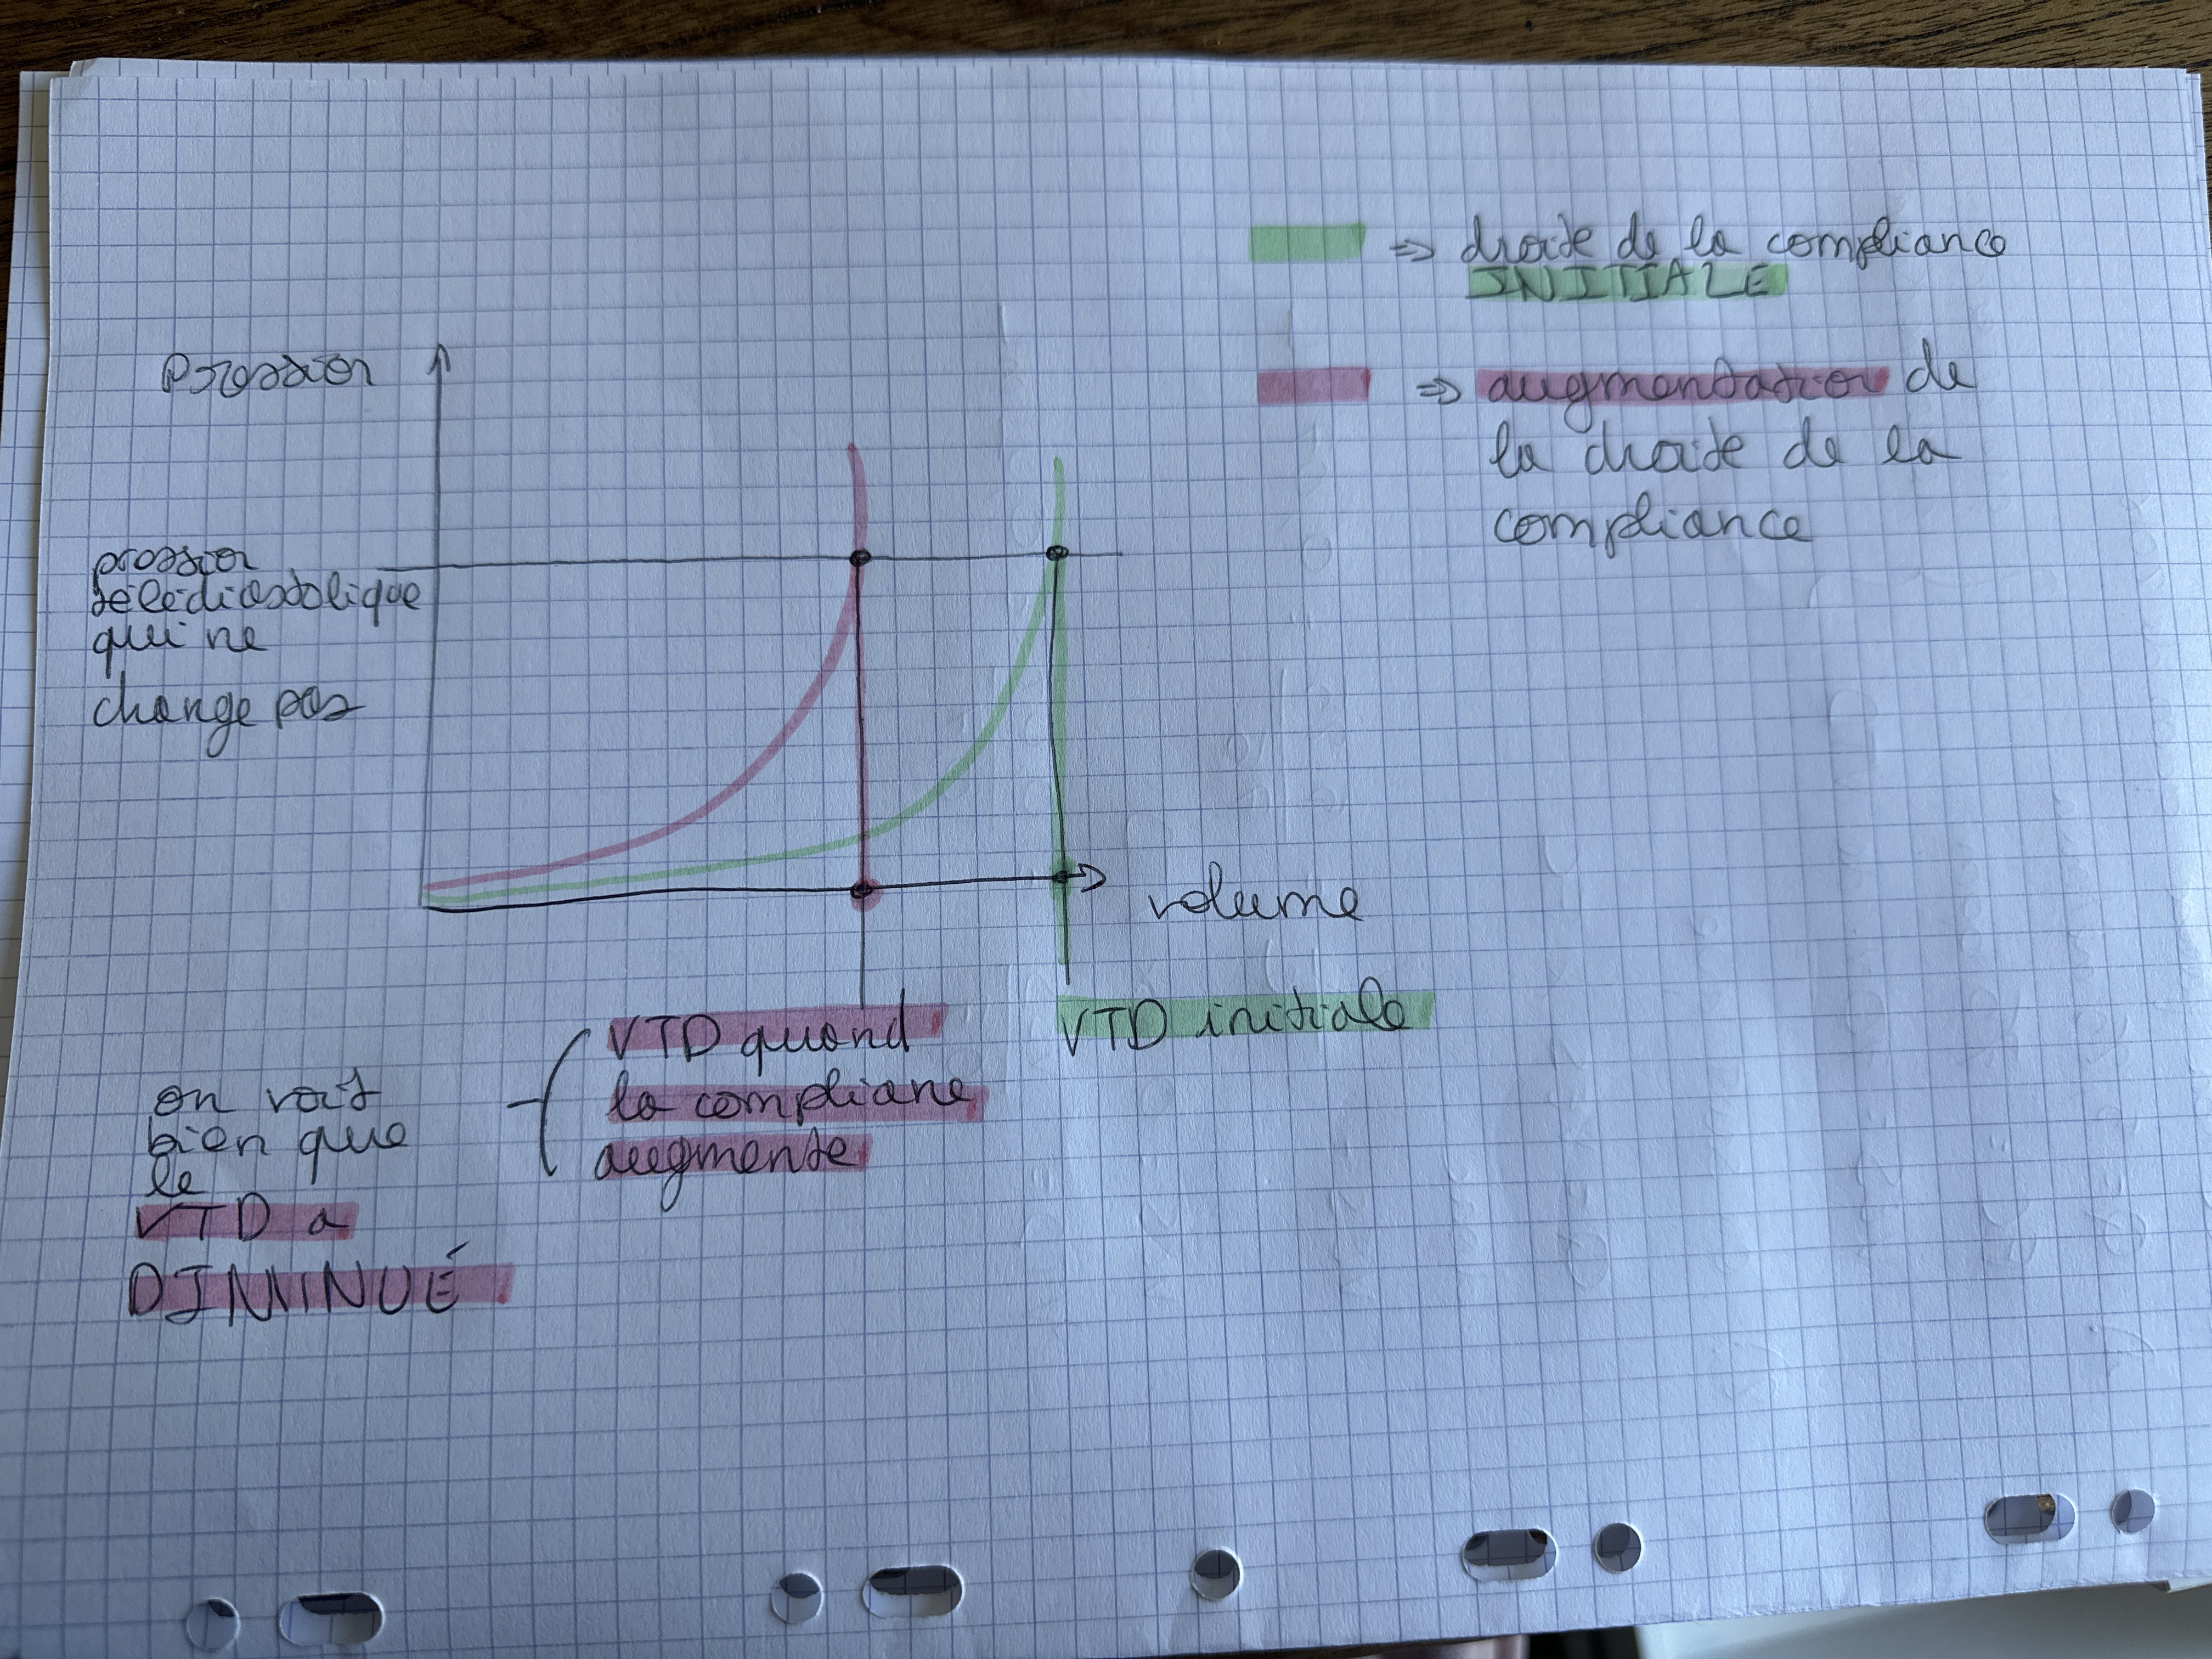 ⇒ droite de la compliance
INITIALE
⇒ augmentation de
la droite de la
compliance
Pression
pression
télédiastolique
qui ne
change pas
volume
VTD quand
la compliane
augmente
VTD initiale
on voit
bien que
le
VTD a
DIMINUÉ